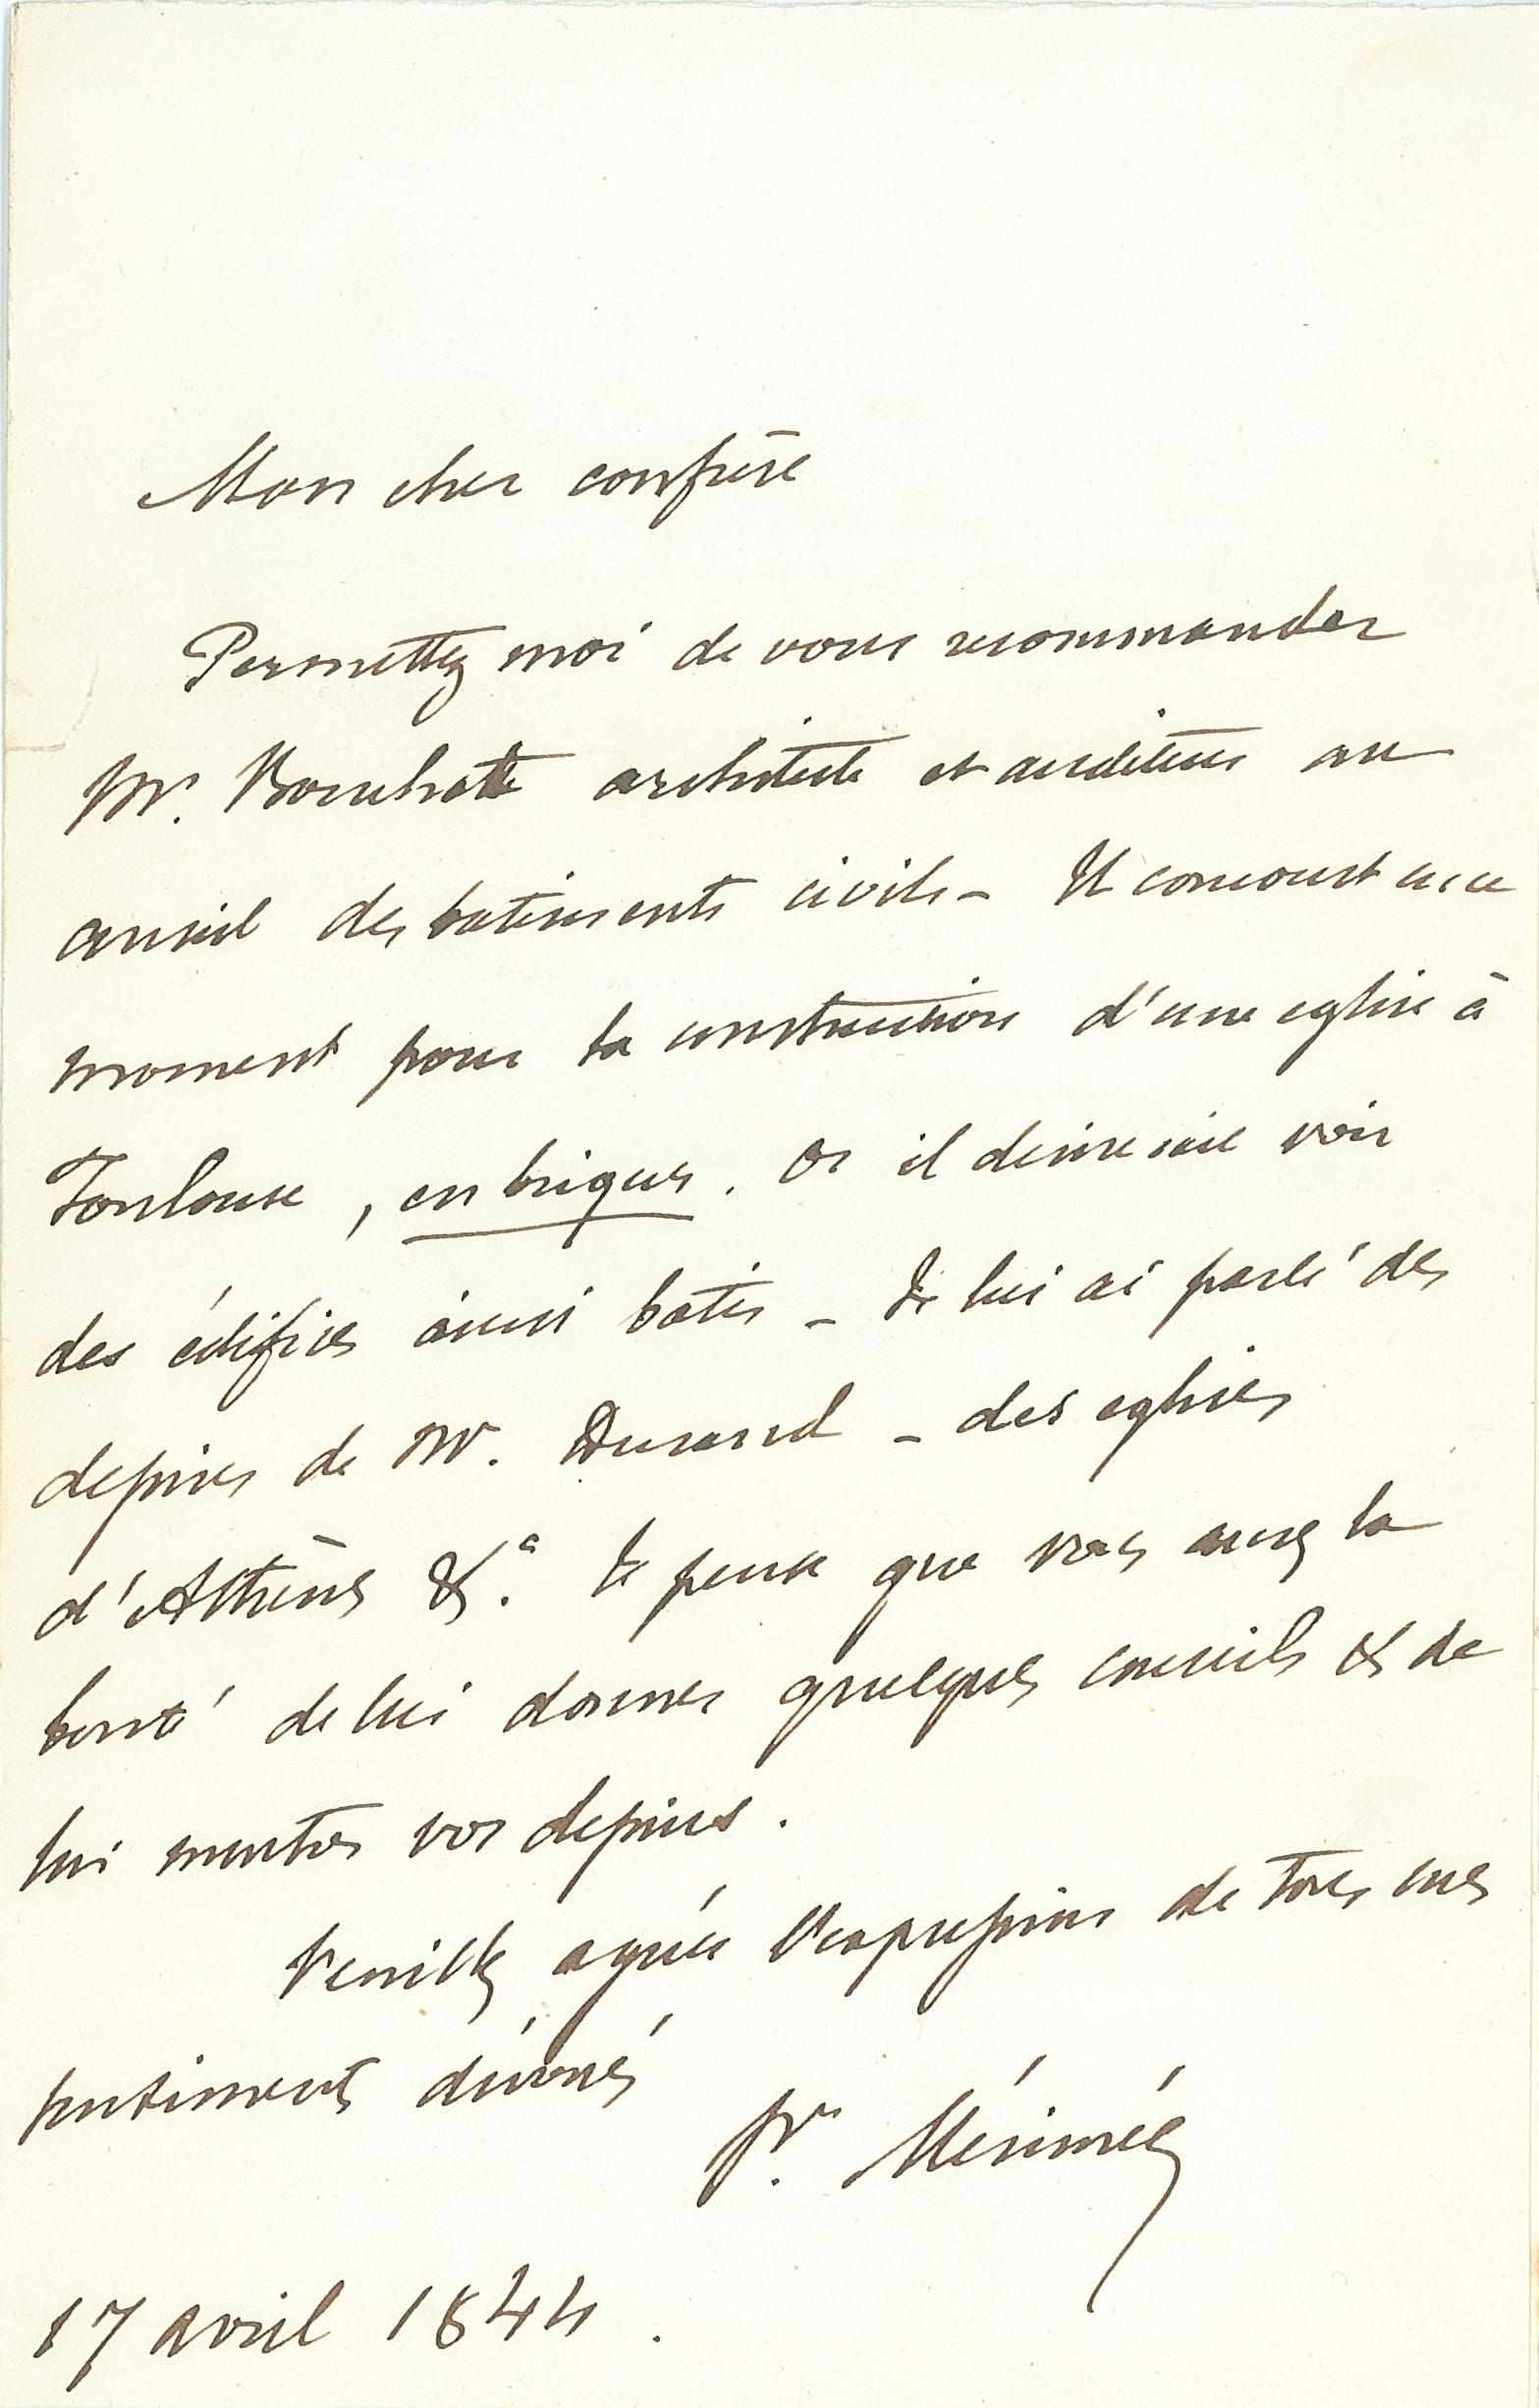 Mon cher confrère
Permettez moi de vous recommander
Mr. Bouchotte architecte et auditeur au
conseil des batiments civils – Il concourt en ce
moment pour la construction d'une eglise à
Toulouse, en briques. Or il desireroit voir
des édifices ainsi batis – Je lui ai parlé des
dessins de Mr. Durand – des eglises
d'Athènes &a. Je pense que vous aurez la
bonté de lui donner quelques conseils & de
lui montrer vos dessins.
Veuillez agréer l'expression de tous mes
sentiments dévoués
Pr. Mérimée
17 avril 1844.